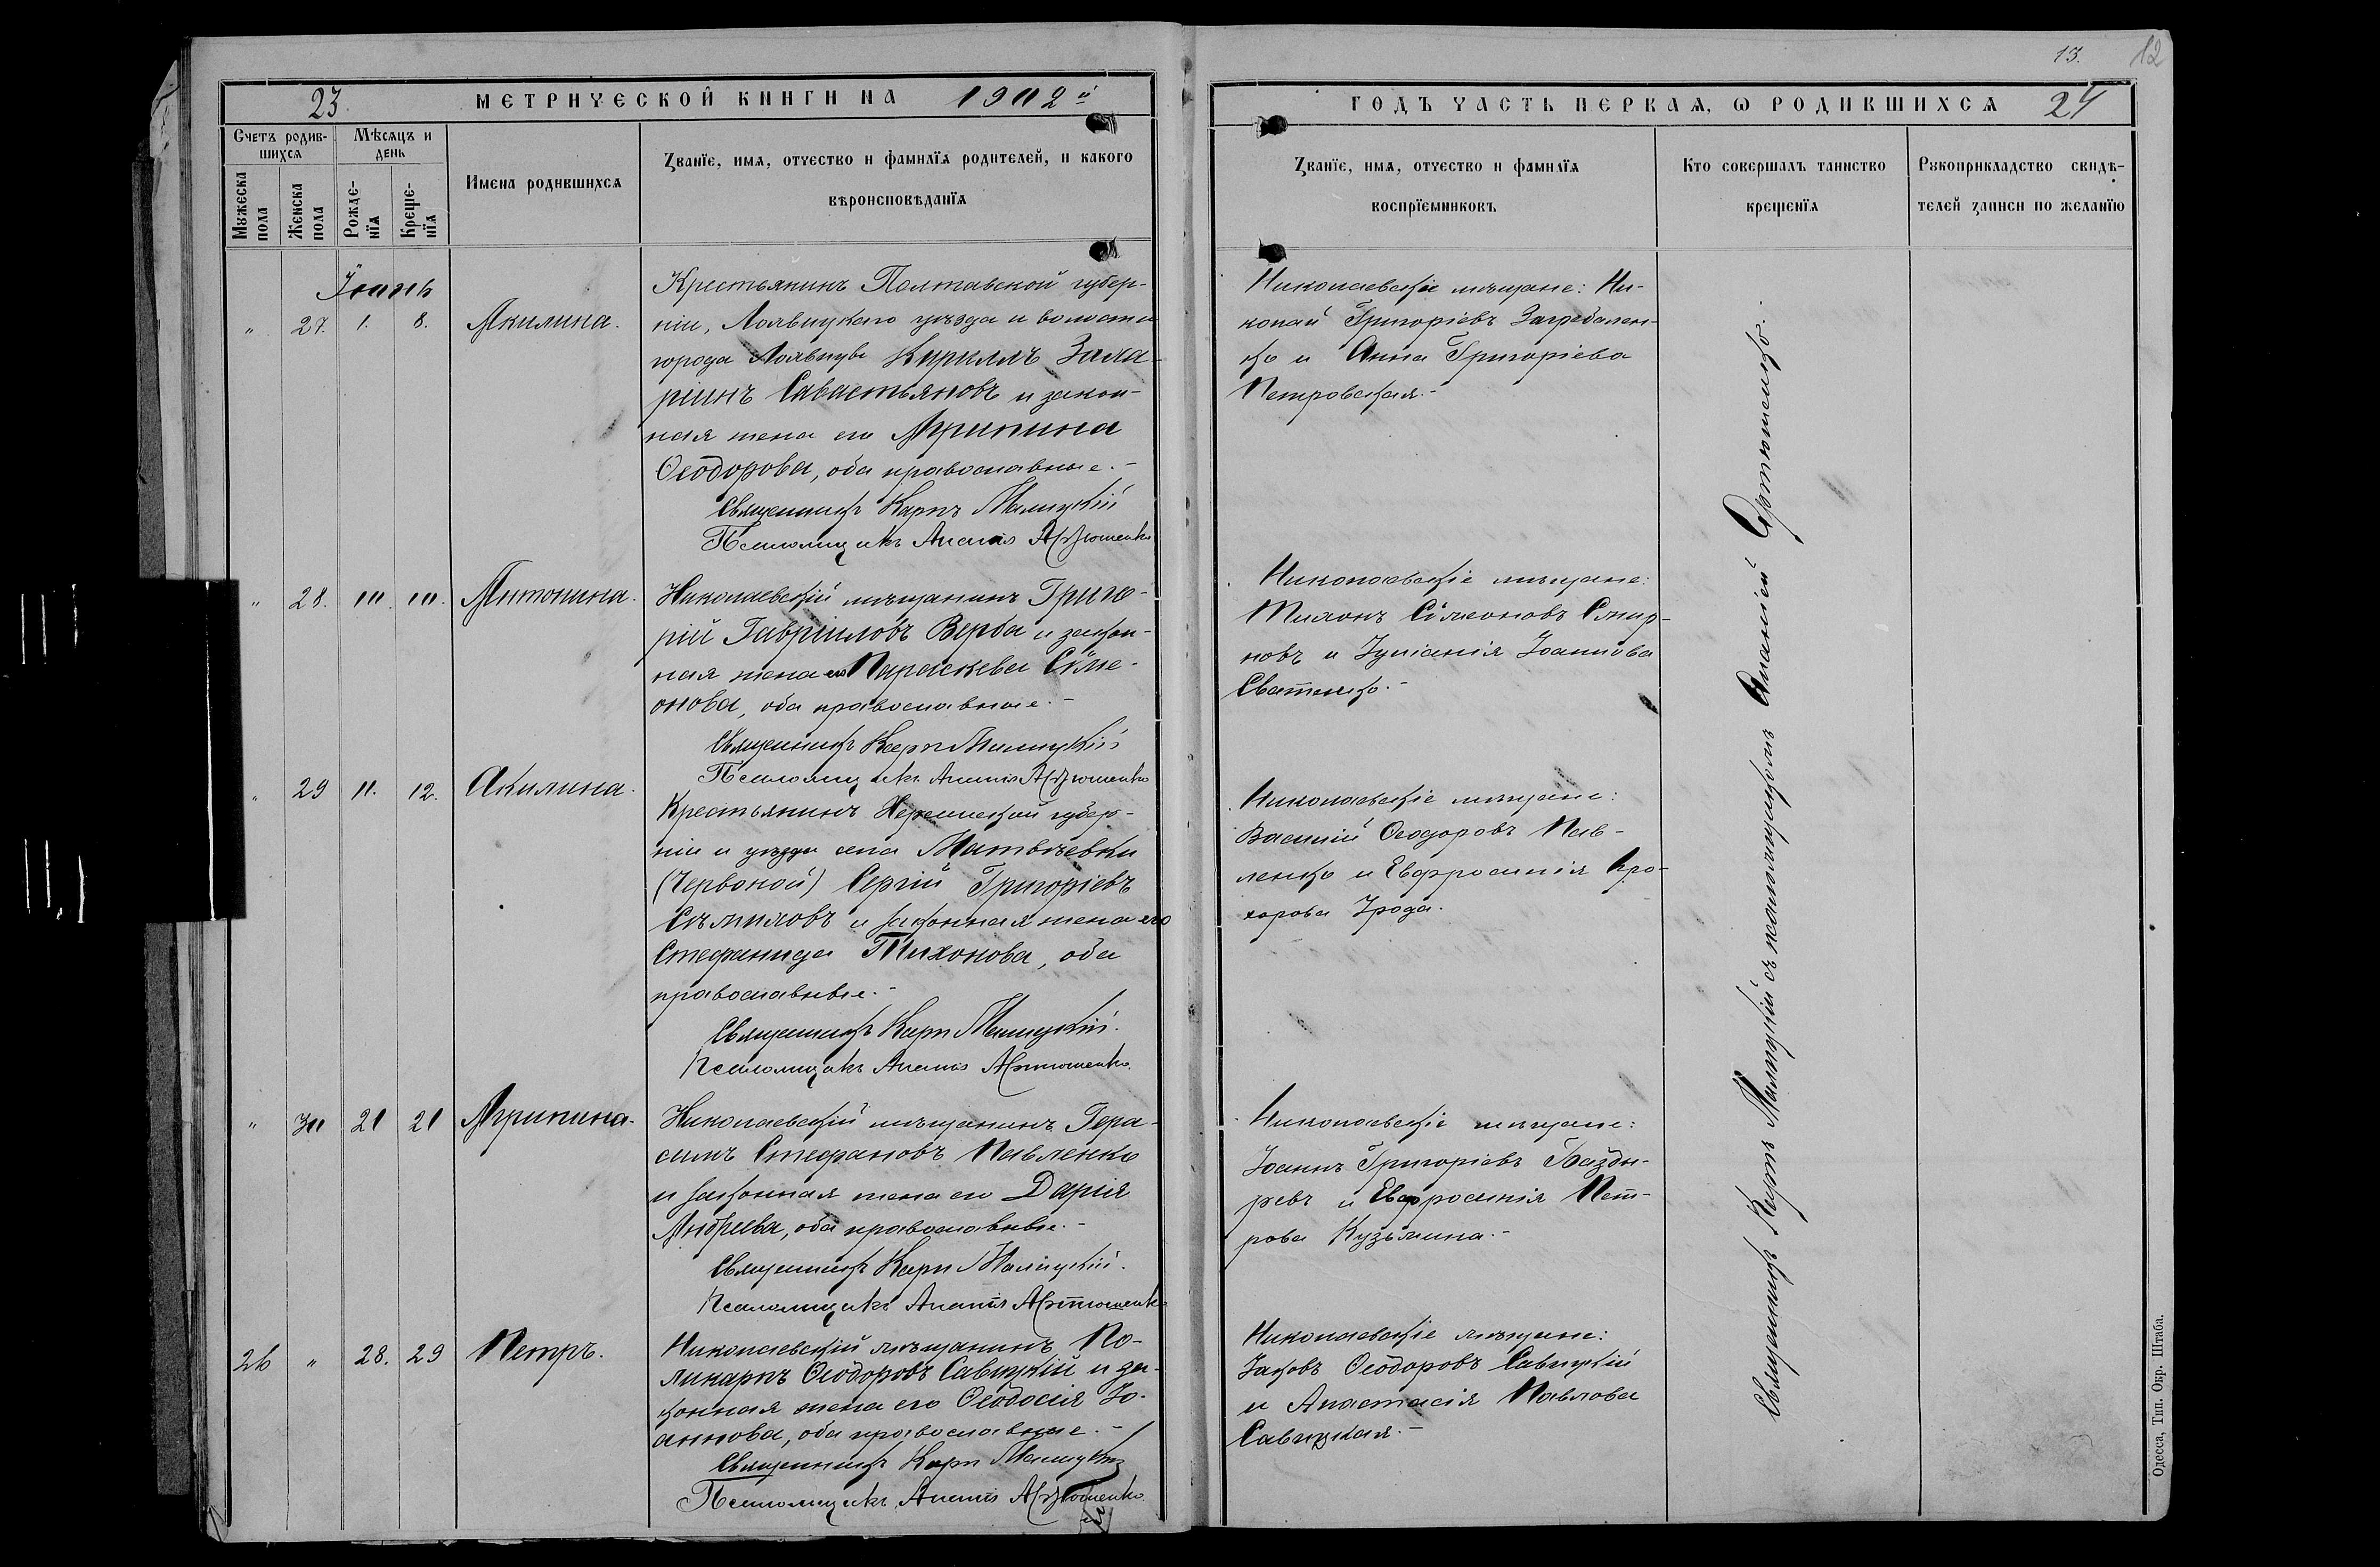 13. 12
23. МЕТРИЧЕСКОЙ КНИГИ НА 1902й
ГОДЪ ЧАСТЬ ПЕРВАЯ, Ѡ РОДИВШИХСЯ 24
Счетъ родив-
шихся
Мѣсяцъ и
день
Мужеска
пола
Женска
пола
Рожде-
нїя
Креще-
нїя
Имена родившихся
Званїе, имя, отчество и фамилїя родителей, и какого
вѣроисповѣданїя
Званїе, имя, отчество и фамилїя
воспрїемниковъ
Кто совершалъ таинство
крещенїя
Рукоприкладство свидѣ-
телей записи по желанїю
Іюнь
" 27. 1. 8. Акилина.
Крестьянинъ Полтавской губер-
ніи, Лохвицкаго уѣзда и волости
города Лохвицы Кириллъ Заха-
ріинъ Савастьяновъ и закон-
ная жена его Агрипина
Ѳеодорова, оба православные.-
Священникъ Карпъ Малицкій
Псаломщикъ Ананія Артюшенко
Николаевскіе мѣщане: Ни-
колай Григоріевъ Загребален-
ко и Анна Григоріева
Петровская.-
" 28. 10. 10. Антонина.
Николаевскій мѣщанинъ Григо-
рій Гавріиловъ Верба и закон-
ная жена его Параскева Сѵме-
онова, оба православные.-
Священникъ Карпъ Малицкій
Псаломщикъ Ананія Артюшенко
Николаевскіе мѣщане:
Тихонъ Сѵмеоновъ Смир-
новъ и Іуліанія Іоаннова
Сватенко.-
" 29 11. 12. Акилина.
Крестьянинъ Херсонской губер-
ніи и уѣзда села Матвѣевки
(Червоной) Сергій Григоріевъ
и законная жена его
Стефанида Тихонова, оба
православные.-
Священникъ Карпъ Малицкій.
Псаломщикъ Ананія Артюшенко.
Николаевскіе мѣщане:
Василій Ѳеодоровъ Пав-
ленко и Евфросинія Про-
хорова
" 30 21 21 Агрипина.
Николаевскій мѣщанинъ Гера-
симъ Стефановъ Павленко
и законная жена его Дарія
Андреева, оба православные.-
Священникъ Карпъ Малицкій.
Псаломщикъ Ананія Артюшенко
Николаевскіе мѣщане:
Іоаннъ Григоріевъ Базды-
ревъ и Евфросинія Пет-
рова Кузьмина.-
26 " 28. 29 Петръ.
Николаевскій мѣщанинъ По-
ликарпъ Ѳеодоровъ Савицкій и за-
конная жена его Ѳеодосія Іо-
аннова, оба православные.-
Священникъ Карпъ Малицкій
Псаломщикъ Ананія Артюшенко
Николаевскіе мѣщане:
Іаковъ Ѳеодоровъ Савицкій
и Анастасія Павлова
Савицкая.-
Священникъ Карпъ Малицкій съ псаломщикомъ Ананіей Артюшенко.
Одесса, Тип. Окр. Штаба.